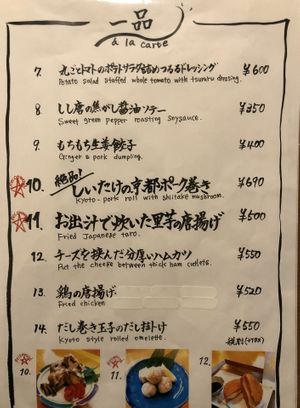 一品
à la carte
7. 丸ごとトマトのポテトサラダ詰めつるるドレッシング ¥600
Potato salad staffed whole tomato with tsururu dressing.
8. しし唐の焦がし醤油ソテー ¥350
Sweet green pepper roasting soysauce.
9. もちもち生姜餃子 ¥400
Ginger & pork dumpling.
10. 絶品! しいたけの京都ポーク巻き ¥690
Kyoto-pork roll with shiitake mushroom.
11. お出汁で炊いた里芋の唐揚げ ¥500
Fried Japanese taro.
12. チーズを挟んだ分厚いハムカツ ¥550
Put the cheese between thick ham cutlets.
13. 鶏の唐揚げ ¥520
Fried chicken
14. だし巻き玉子のだし掛け ¥550
Kyoto style rolled omelette.
10.
11.
12.